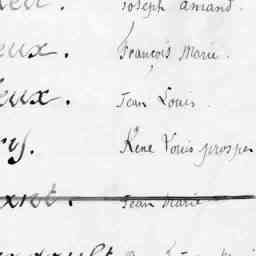 Joseph amand.
eux. François Marie.
eux. Jean Louis.
ry. René Louis prosper
Jean Marie